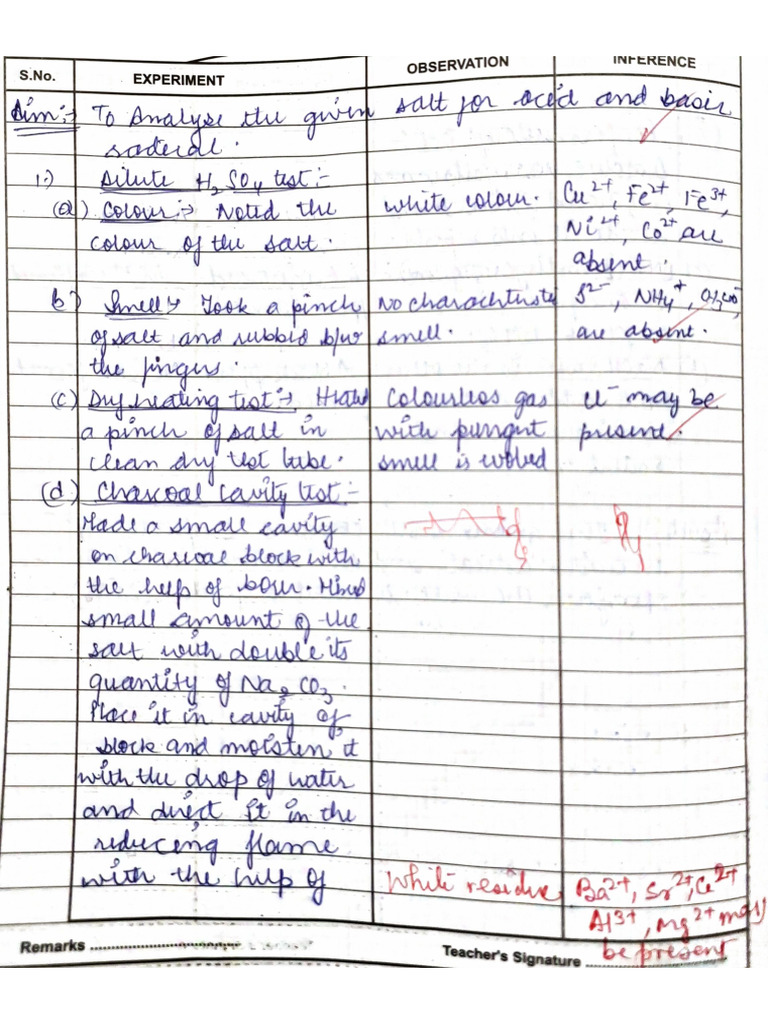 S.No. EXPERIMENT OBSERVATION INFERENCE
Aim:- To Analyse the given salt for acid and basic
radical.
1.) Dilute H2SO4 test:-
(a) Colour:- Noted the white colour. Cu2+, Fe2+, Fe3+,
colour of the salt. Ni2+, Co2+ are
absent.
b) Smell:- Took a pinch No charachterstc S2-, NH4+, CH3COO-,
of salt and rubbed b/w smell. are absent.
the fingers.
(c) Dry heating test:- Heated Colourless gas Cl- may be
a pinch of salt in with pungent present.
clean dry test tube. smell is evolved
(d) Charcoal Cavity test:-
Made a small cavity
on charcoal block with
the help of borer. Mixed
small amount of the
salt with double its
quantity of Na2CO3.
Place it in cavity of
block and moisten it
with the drop of water
and direct it in the
reducing flame
with the help of White residue Ba2+, Sr2+, Ca2+
Al3+, Mg2+ may
be present
Remarks Teacher's Signature